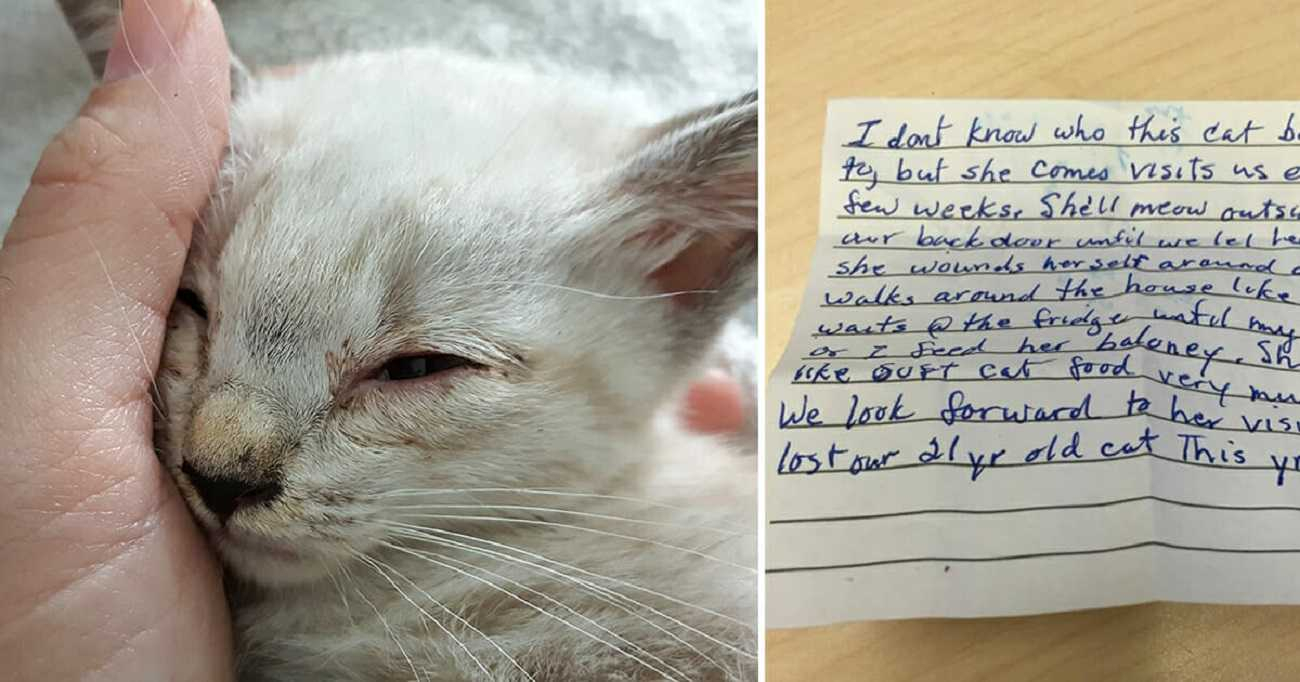 I dont know who this cat b
to, but she comes visits us e
few weeks. She'll meow outs
our back door until we let he
she wounds herself around
walks around the house like
waits @ the fridge until my
or I feed her baloney. Sh
like cat food very mu
We look forward to her visi
lost our 21 yr old cat This yr